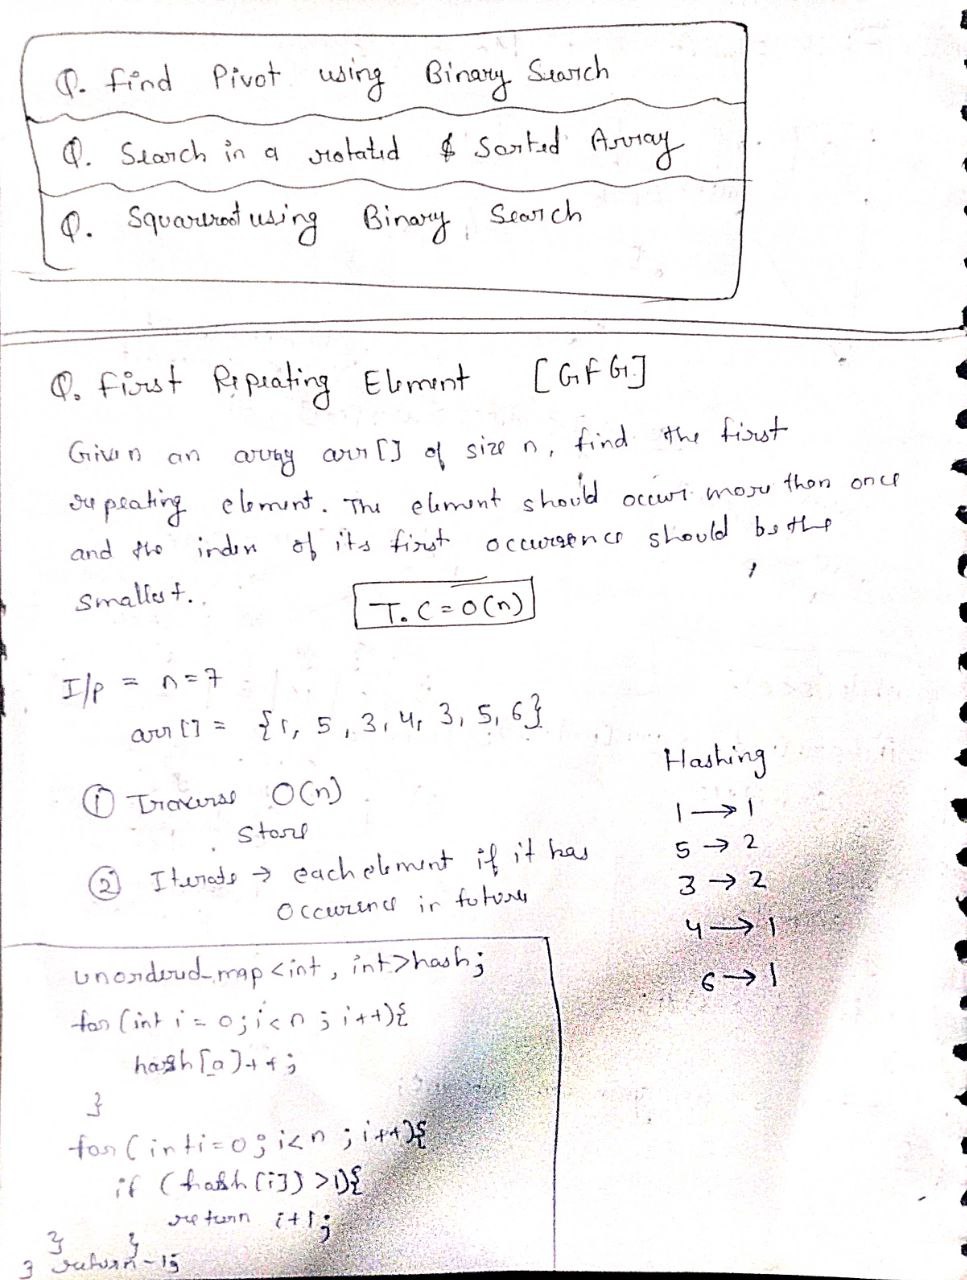 Q. find Pivot using Binary Search
Q. Search in a rotated & Sorted Array
Q. Squareroot using Binary Search
Q. First Repeating Element [GFG]
Given an array arr[] of size n, find the first
repeating element. The element should occurs more than once
and the index of its first occurrence should be the
smallest.
T.C = O(n)
I/p = n=7
arr[] = {1, 5, 3, 4, 3, 5, 6}
① Traverse O(n)
Store
② Iterate → each element if it has
Occurence in future
Hashing
1 → 1
5 → 2
3 → 2
4 → 1
6 → 1
unordered_map <int, int> hash;
for (int i = 0; i<n; i++){
hash[a]++;
}
for (int i=0; i<n; i++){
if (hash[i]) >1){
return i+1;
} }
} return -1;